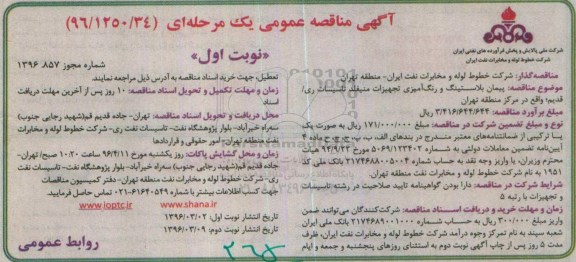 آگهی مناقصه عمومی یک مرحله‌ای (۹۶/۱۲۵۰/۳۴)
«نوبت اول»
شماره مجوز ۱۳۹۶.۸۵۷
شرکت ملی پالایش و پخش فرآورده های نفتی ایران
شرکت خطوط لوله و مخابرات نفت ایران
مناقصه‌گذار: شرکت خطوط لوله و مخابرات نفت ایران- منطقه تهران
موضوع مناقصه: پیمان بلاستینگ و رنگ‌آمیزی تجهیزات منیفلد تاسیسات ری/
قدیم/ واقع در مرکز منطقه تهران
مبلغ برآورد مناقصه: ۳/۴۱۶/۶۴۴/۶۴۴ ریال
نوع و مبلغ تضمین شرکت در مناقصه: ۱۷۱/۰۰۰/۰۰۰ ریال به صورت یک
یا ترکیبی از ضمانتنامه‌های معتبر مندرج در بندهای الف، ب، پ، ج، چ، ح ماده ۴
آیین‌نامه تضمین معاملات دولتی به شماره ۱۲۳۴۰۲/ت۵۰۶۵۹ه مورخ ۹۴/۹/۲۲ هیأت
محترم وزیران، یا واریز وجه نقد به حساب شماره ۲۱۷۴۶۸۸۰۰۵۰۰۴ بانک ملی کد
۱۹۵۱ به نام شرکت خطوط لوله و مخابرات نفت ایران
شرایط شرکت در مناقصه: دارا بودن گواهینامه تایید صلاحیت در رشته تاسیسات
و تجهیزات با رتبه ۵
زمان و مهلت خرید و دریافت اسناد مناقصه: شرکت‌کنندگان می‌توانند ضمن
واریز مبلغ ۳۰۰/۰۰۰ ریال به حساب شماره ۲۱۷۴۶۸۹۰۰۱۰۰۰ بانک ملی ایران
شعبه سپند به نام تمرکز وجوه درآمد شرکت خطوط لوله و مخابرات نفت ایران، ظرف
مدت ۵ روز پس از چاپ آگهی نوبت دوم به استثنای روزهای پنجشنبه و جمعه و ایام
تعطیل، جهت خرید اسناد مناقصه به آدرس ذیل مراجعه نمایند.
زمان و مهلت تکمیل و تحویل اسناد مناقصه: ۱۰ روز پس از آخرین مهلت دریافت
اسناد
محل دریافت و تحویل اسناد مناقصه: تهران- جاده قدیم قم(شهید رجایی جنوبی)
سه‌راه خیرآباد- بلوار پژوهشگاه نفت- تاسیسات نفت ری- شرکت خطوط لوله و مخابرات
نفت منطقه تهران- امور حقوقی و قراردادها
زمان و محل گشایش پاکات: روز یکشنبه مورخ ۹۶/۴/۱۱ ساعت ۱۰:۲۰ صبح/ تهران-
جاده قدیم قم(شهید رجایی جنوبی) سه‌راه خیرآباد- بلوار پژوهشگاه نفت- تاسیسات نفت
ری- شرکت خطوط لوله و مخابرات نفت منطقه تهران- دفتر کمیسیون مناقصات
جهت کسب اطلاعات بیشتر با شماره ۶۱۶۴۰۵۴۹-۰۲۱ تماس حاصل فرمایید.
www.shana.ir www.ioptc.ir
تاریخ انتشار نوبت اول: ۱۳۹۶/۰۳/۰۲
تاریخ انتشار نوبت دوم: ۱۳۹۶/۰۳/۰۹
روابط عمومی
۲۶۵